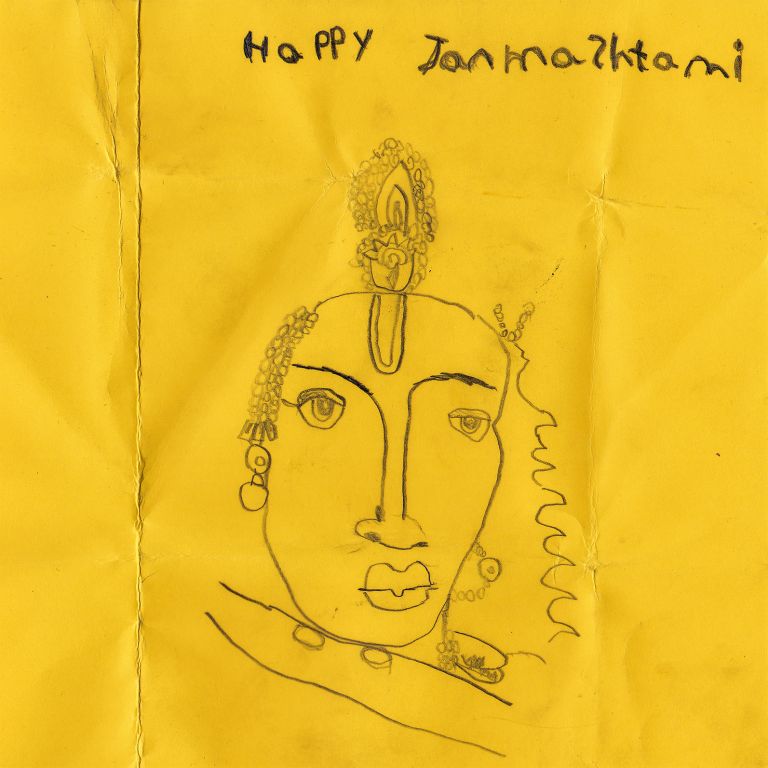 Happy Janmashtami